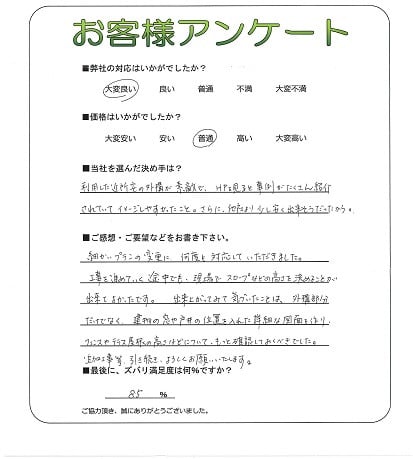 お客様アンケート
■弊社の対応はいかがでしたか？
大変良い　良い　普通　不満　大変不満
■価格はいかがでしたか？
大変安い　安い　普通　高い　大変高い
■当社を選んだ決め手は？
利用した近所宅の外構が素敵で、HPを見ると事例がたくさん紹介
されていてイメージしやすかったこと。さらに、他社より少し安く出来そうだったから。
■ご感想・ご要望などをお書き下さい。
細かいプランの変更に、何度も対応していただきました。
工事を進めていく途中でも、現場でスロープなどの高さを決めることが
出来てよかったです。　出来上がってみて気づいたことは、外構部分
だけでなく、建物の窓や戸井の位置を入れた詳細な図面を作り、
フェンスやテラス屋根の高さなどについて、もっと確認しておくべきでした。
追加工事等、引き続き、よろしくお願いいたします。
■最後に、ズバリ満足度は何％ですか？
85　％
ご協力頂き、誠にありがとうございました。